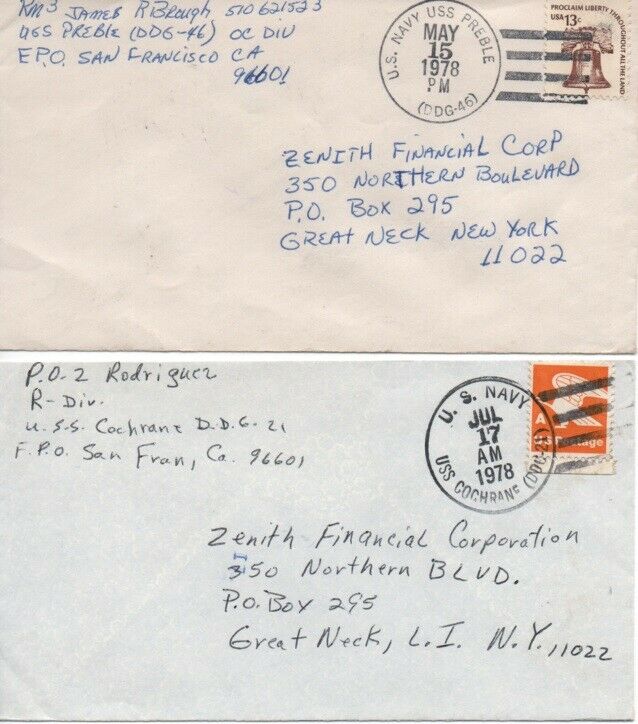 RM3 JAMES R BROUGH 510621523
USS PREBLE (DDG-46) OC DIV
F.P.O. SAN FRANCISCO CA
96601
U.S. NAVY USS PREBLE
MAY
15
1978
PM
(DDG-46)
PROCLAIM LIBERTY THROUGHOUT ALL THE LAND
USA 13c
ZENITH FINANCIAL CORP
350 NORTHERN BOULEVARD
P.O. BOX 295
GREAT NECK NEW YORK
11022
P.O.2 Rodriguez
R-Div.
U.S.S. Cochrane D.D.G-21
F.P.O. San Fran, Ca. 96601
U. S. NAVY
JUL
17
AM
1978
USS COCHRANE (DDG-21)
A
US Postage
Zenith Financial Corporation
350 Northern BLVD.
P.O. Box 295
Great Neck, L.I. N.Y. 11022